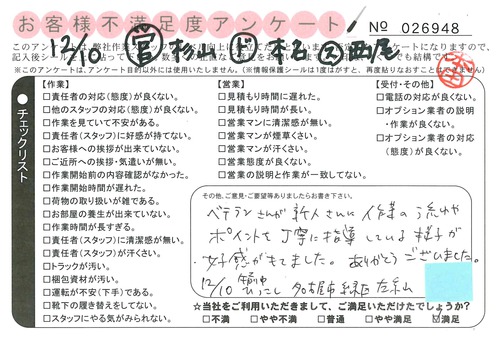 お客様不満足度アンケート
No 026948
12/10 営 杉山
このアンケートは、弊社作業スタッフ
記入後シール
※このアンケートは、アンケート目的以外には使用いたしません。(※情報保護シールは1度はがすと、再度貼りなおすことはできません)
チェックリスト
【作業】
□責任者の対応(態度)が良くない。
□他のスタッフの対応(態度)が良くない。
□作業を見ていて不安がある。
□責任者(スタッフ)に好感が持てない。
□お客様への挨拶が出来ていない。
□ご近所への挨拶・気遣いが無い。
□作業開始前の内容確認がなかった。
□作業開始時間が遅れた。
□荷物の取り扱いが雑である。
□お部屋の養生が出来ていない。
□作業時間が長すぎる。
□責任者(スタッフ)に清潔感が無い。
□責任者(スタッフ)が汗くさい。
□トラックが汚い。
□梱包資材が汚い。
□運転が不安(下手)である。
□靴下の履き替えをしてない。
□スタッフにやる気がみられない。
【営業】
□見積もり時間に遅れた。
□見積もり時間が長い。
□営業マンに清潔感が無い。
□営業マンが煙草くさい。
□営業マンが汗くさい。
□営業態度が良くない。
□営業の説明と作業が一致してない。
【受付・その他】
□電話の対応が良くない。
□オプション業者の説明・作業が良くない。
□オプション業者の対応(態度)が良くない。
その他、ご意見・ご要望等ありましたらお書き下さい。
ベテランさんが新人さんに作業の流れや
ポイントを丁寧に指導している様子が
好感がもてました。ありがとうございました。
12/10
名古屋市緑区
☆当社をご利用いただきまして、ご満足いただけたでしょうか?
□不満 □やや不満 □普通 □やや満足 ☑満足